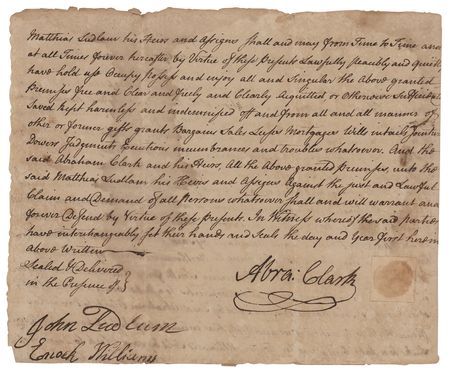 Matthias Ludlam his Heirs and Assigns shall and may from Time to Time and
at all Times forever hereafter by Virtue of these Presents Lawfully peaceably and quietly
have hold use Occupy possess and enjoy all and Singular the Above granted
Premises free and Clear and freely and Clearly Acquitted, or Otherwise Sufficiently
Saved kept harmless and indemnified off and from all and all manner of
other or former gifts grants Bargains Sales Leases Mortgages Wills intails Jointures
Dowers Judgments Executions incumbrances and troubles whatsoever. And the
said Abraham Clark and his Heirs, All the Above granted premises, unto the
said Matthias Ludlam his Heirs and Assigns Against the just and Lawful
Claim and Demand of all Persons whatsoever shall and will warrant and
forever Defend by Virtue of these Presents. In Witness whereof the said parties
have interchangeably set their hands and seals the day and year first herein
above Written
Sealed & Delivered
in the Presence of
Abra: Clark
John Ludlum
Enoch Williams